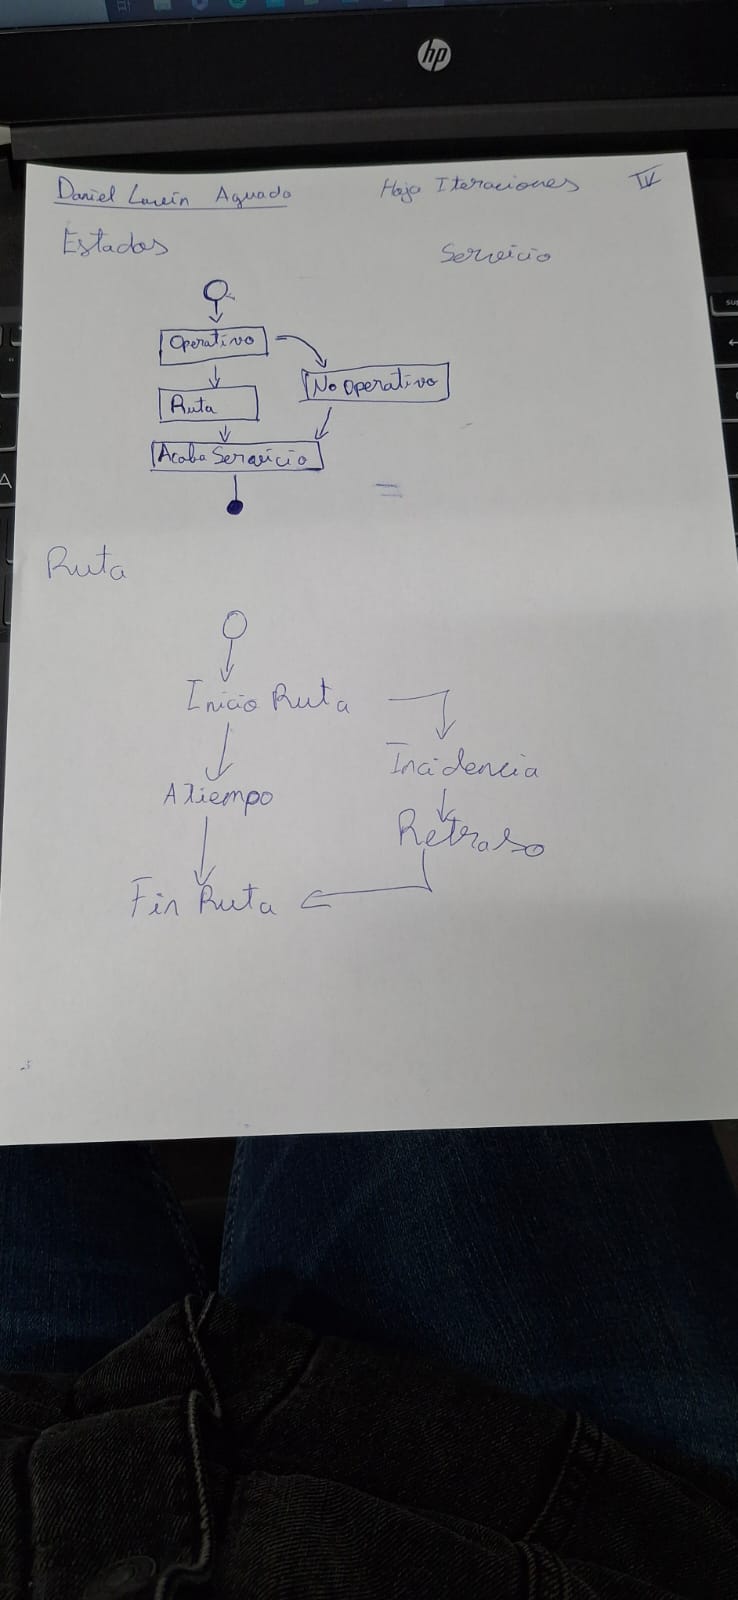 hp
Daniel Aguado Hoja Iteraciones IV
Estados Servicio
Operativo
No Operativo
Ruta
Acaba Servicio
Ruta
Inicio Ruta
Incidencia
A Tiempo
Retraso
Fin Ruta